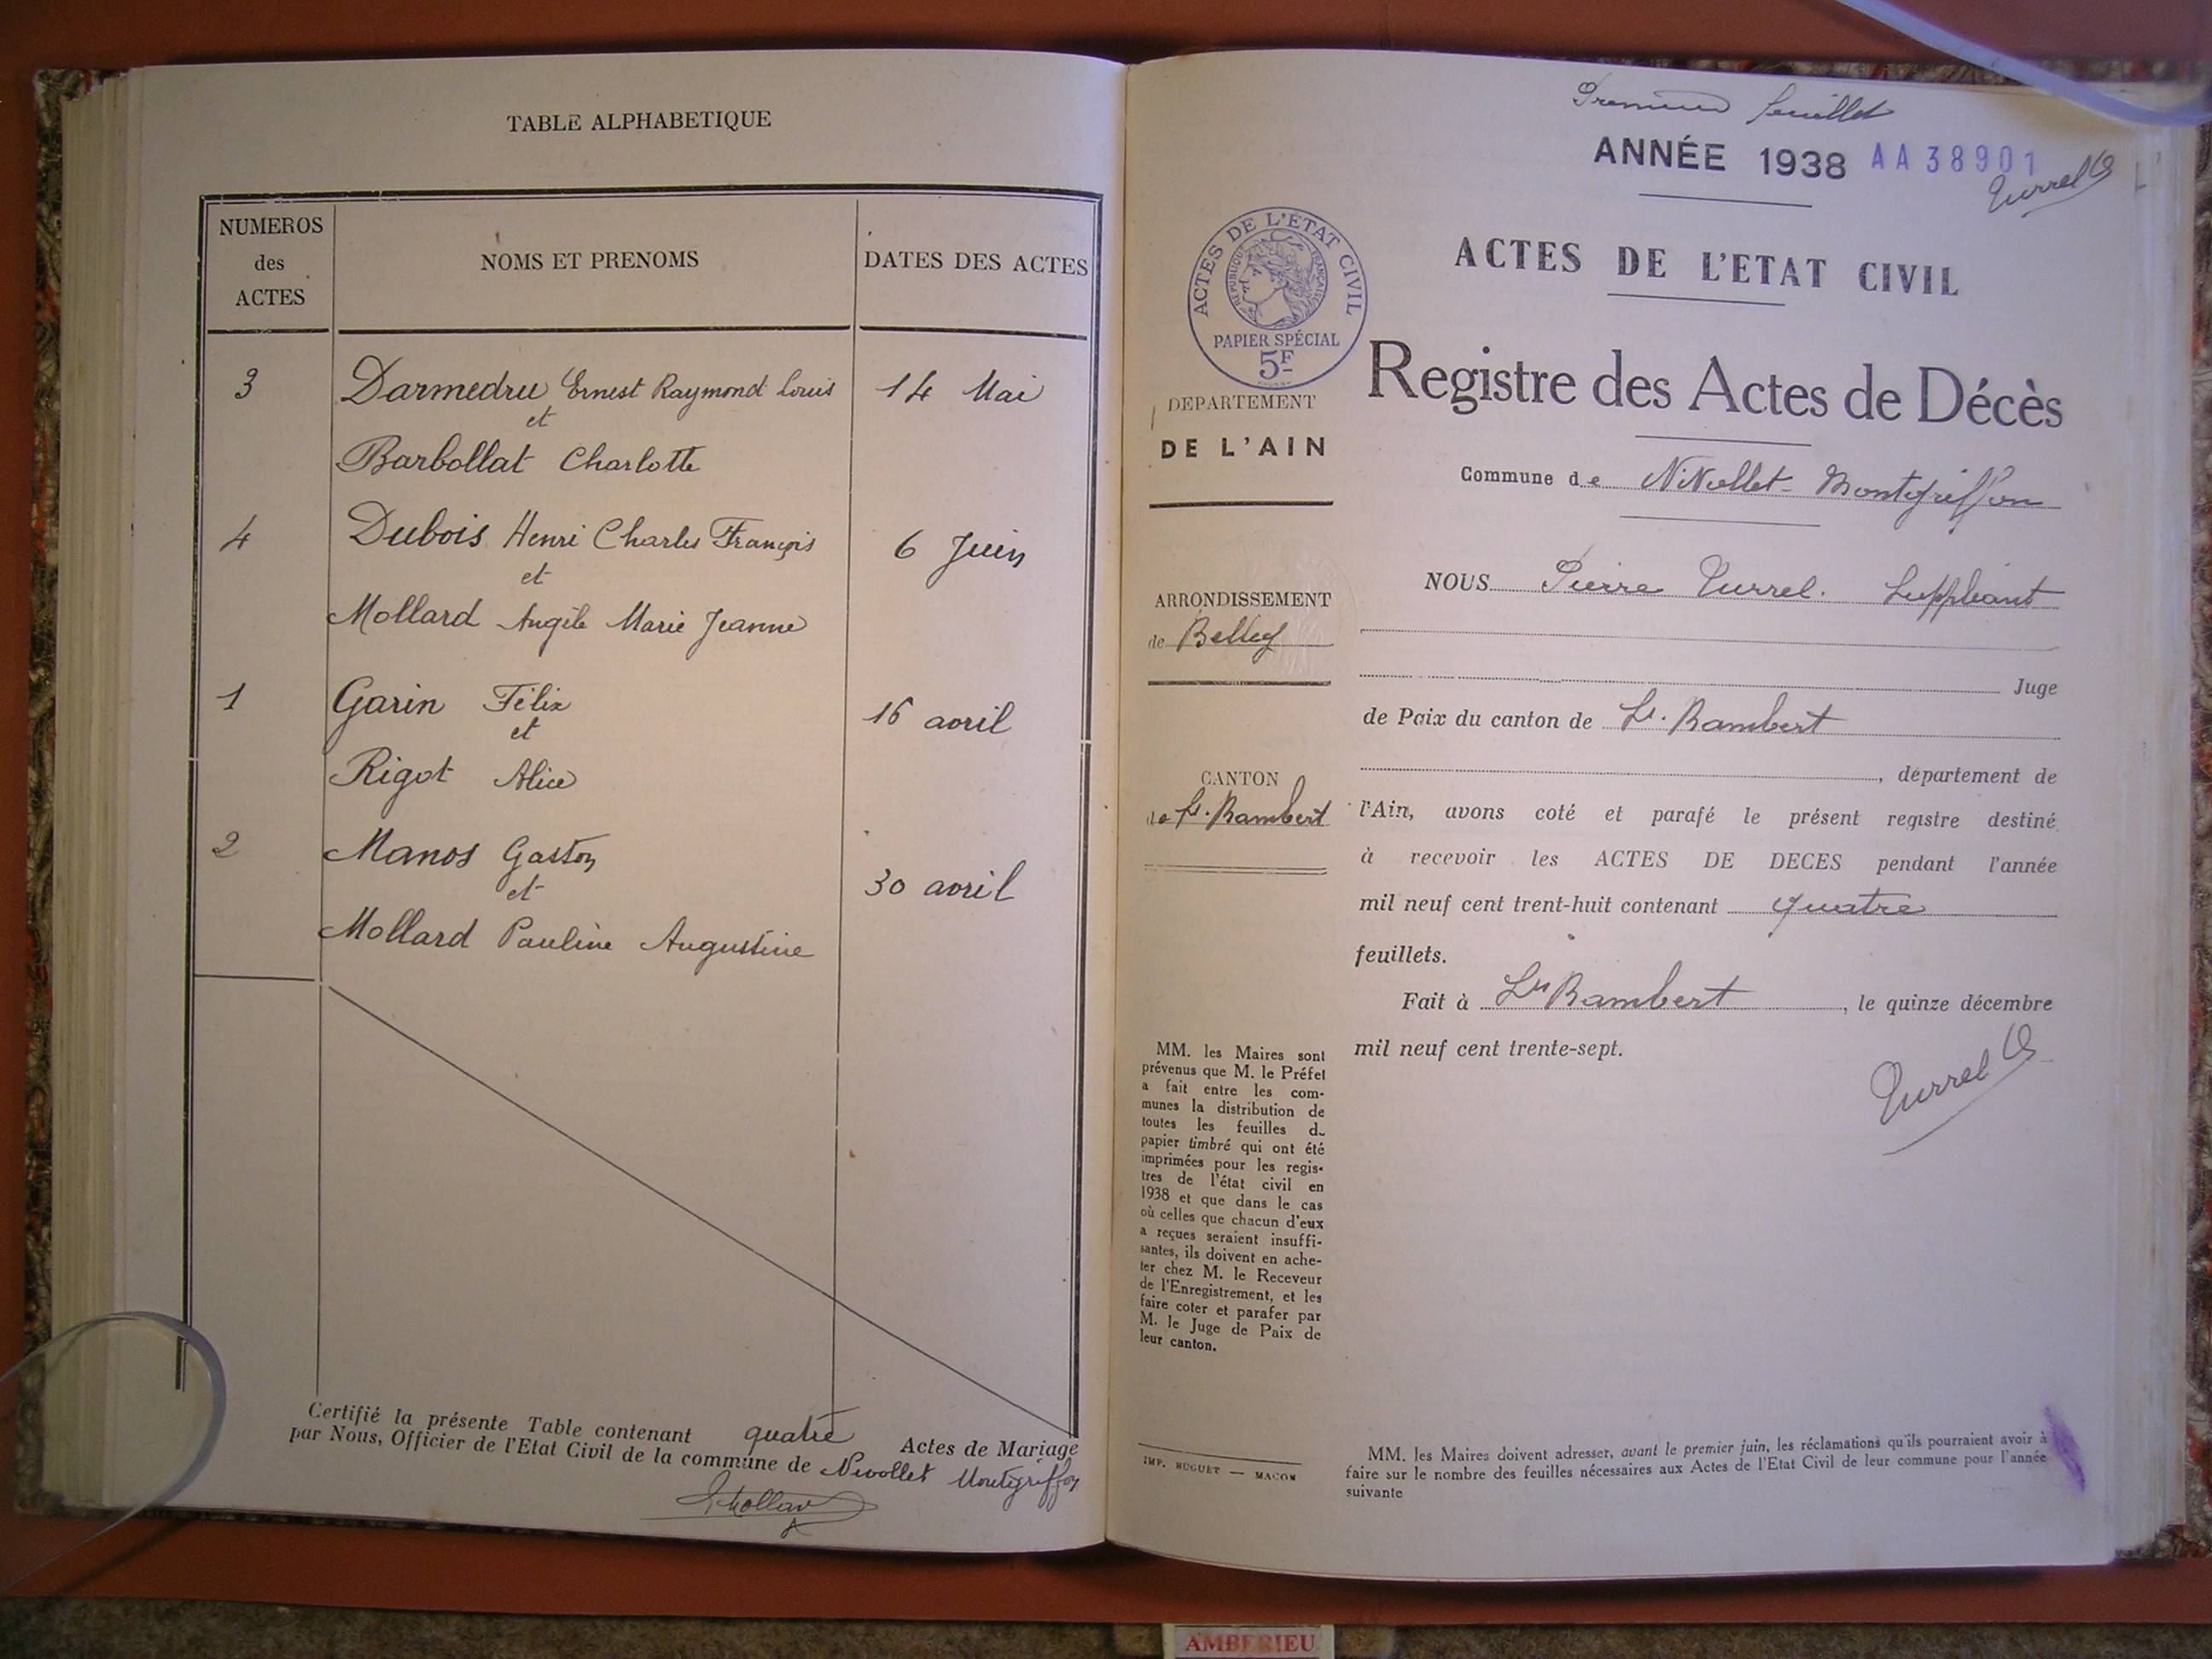 TABLE ALPHABETIQUE
NUMEROS
des
ACTES
NOMS ET PRENOMS
DATES DES ACTES
3 Darmedru Ernest Raymond Louis 14 Mai
et
Barbollat Charlotte
4 Dubois Henri Charles François 6 Juin
et
Mollard Angèle Marie Jeanne
1 Garin Félix 16 avril
et
Rigot Alice
2 Manos Gaston 30 avril
et
Mollard Pauline Augustine
Certifié la présente Table contenant quatre Actes de Mariage
par Nous, Officier de l'Etat Civil de la commune de Nivollet Montgriffon
Premier feuillet
ANNÉE 1938 AA38901
Turrel
ACTES DE L'ETAT CIVIL
ACTES DE L'ÉTAT CIVIL
RÉPUBLIQUE FRANÇAISE
PAPIER SPÉCIAL
5F
Registre des Actes de Décès
DEPARTEMENT
DE L'AIN
Commune de Nivollet-Montgriffon
ARRONDISSEMENT
de Belley
CANTON
de St. Rambert
NOUS Pierre Turrel. Suppléant
Juge
de Paix du canton de St. Rambert
, département de
l'Ain, avons coté et parafé le présent registre destiné
à recevoir les ACTES DE DECES pendant l'année
mil neuf cent trent-huit contenant quatre
feuillets.
Fait à St Rambert, le quinze décembre
mil neuf cent trente-sept.
Turrel
MM. les Maires sont
prévenus que M. le Préfet
a fait entre les com-
munes la distribution de
toutes les feuilles d
papier timbré qui ont été
imprimées pour les regis-
tres de l'état civil en
1938 et que dans le cas
où celles que chacun d'eux
a reçues seraient insuffi-
santes, ils doivent en ache-
ter chez M. le Receveur
de l'Enregistrement, et les
faire coter et parafer par
M. le Juge de Paix de
leur canton.
IMP. BUGUET — MACON
MM. les Maires doivent adresser, avant le premier juin, les réclamations qu'ils pourraient avoir à
faire sur le nombre des feuilles nécessaires aux Actes de l'Etat Civil de leur commune pour l'année
suivante
AMBERIEU